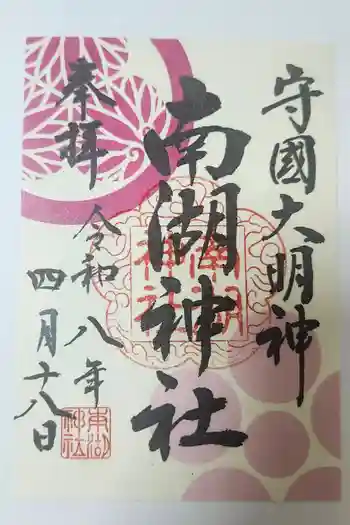 守國大明神
南湖神社
奉拝
令和八年
四月十八日
南湖神社
南湖神社